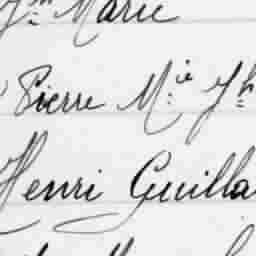 Jn Marie
Pierre Mie Jh
Henri Guilla